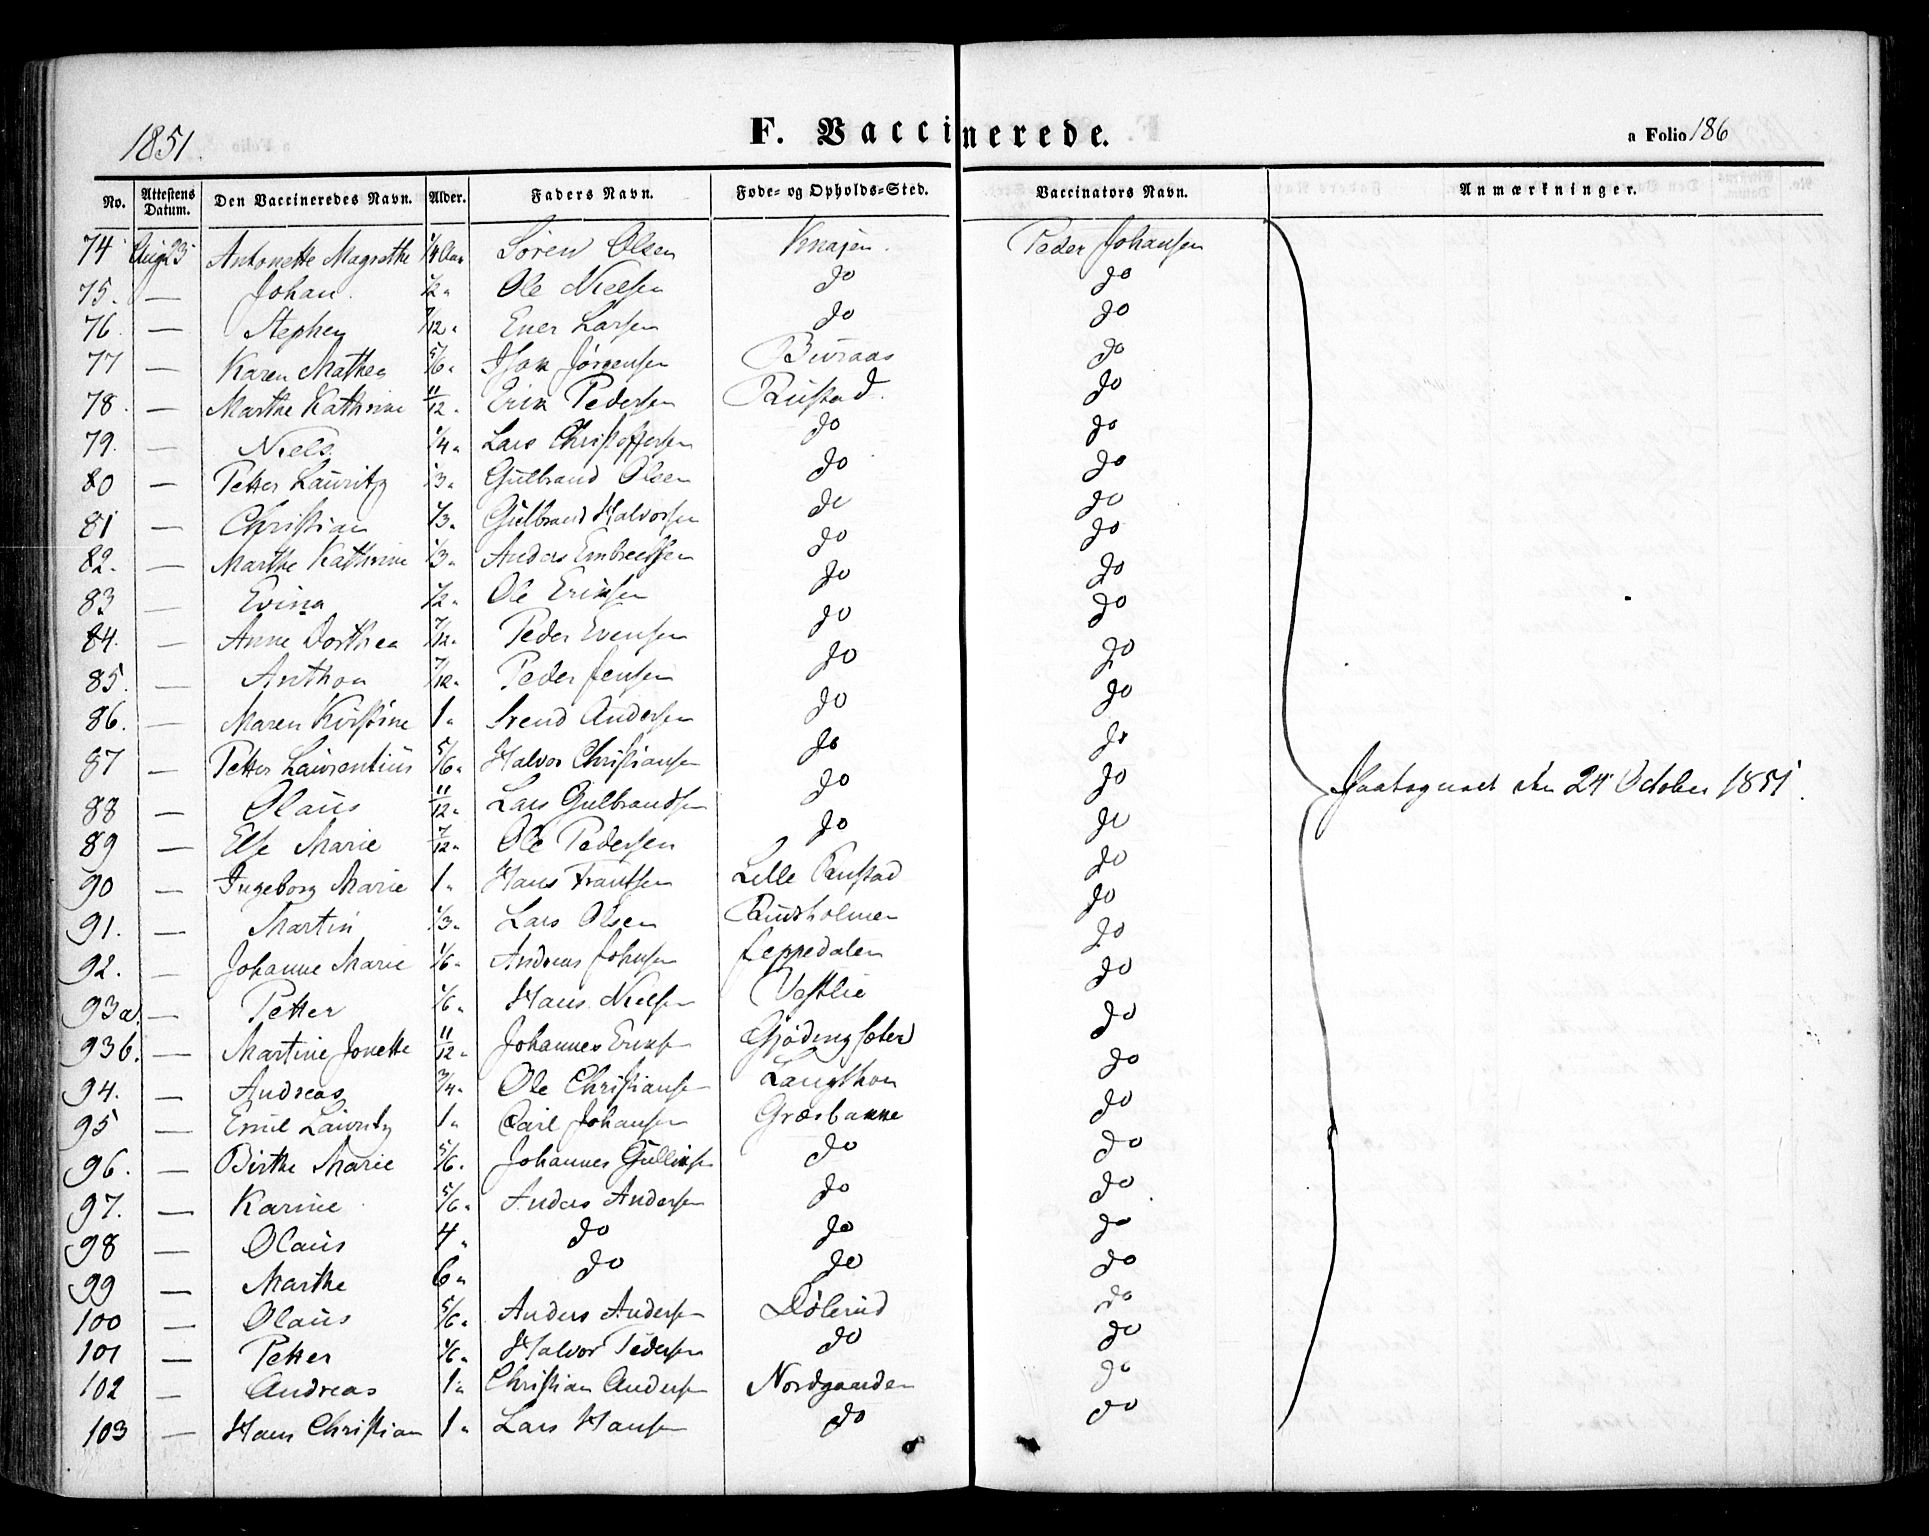 1851.
F. Vaccinerede.
a Folio 186
No. | Attestens Datum. | Den Vaccineredes Navn. | Alder. | Faders Navn. | Føde- og Opholds-Sted. | Vaccinators Navn. | Anmærkninger.
74 | Aug 23 | Antonette Magrethe | 1/4 Aar | Søren Olsen | Knapen. | Peder Johansen
75. | — | Johan. | 1/2 " | Ole Nielsen | do | do
76. | — | Stephen | 7/12 " | Ener Larsen | do | do
77 | — | Karen Mathea | 5/6 " | Isak Jørgensen | Buraas | do
78. | — | Marthe Kathrine | 11/12 " | Erik Pedersen | Rustad. | do
79. | — | Niels | 1/4 " | Lars Christoffersen | do | do
80 | — | Petter Lauritz | 1/3 " | Gulbrand Olsen | do | do
81 | — | Christian | 1/3 " | Gulbrand Halvorsen | do | do
82. | — | Marthe Kathrine | 1/3 " | Anders Embretsen | do | do
83 | — | Evina | 1/2 " | Ole Eriksen | do | do
84. | — | Anne Dorthea | 7/12 " | Peder Evensen | do | do
85. | — | Anthon | 7/12 " | Peder Jensen | do | do
86. | — | Maren Kirstine | 1 " | Svend Andersen | do | do
87 | — | Petter Laurentius | 5/6 " | Halvor Christiansen | do | do
88 | — | Olaus | 11/12 " | Lars Gulbrandsen | do | do | Paategnet den 24 October 1851.
89 | — | Else Marie | 7/12 " | Ole Pedersen | do | do
90 | — | Ingeborg Marie | 1 " | Hans Frantsen | Lille Rustad | do
91. | — | Martin | 1/3 " | Lars Olsen | Rudsholmen | do
92. | — | Johanne Marie | 1/6 " | Andreas Johnsen | Leppedalen | do
93a. | — | Petter | 1/6 " | Hans Nielsen | Vestlie | do
93b. | — | Martine Jonette | 11/12 " | Johannes Eriksen | Gjødingsæter | do
94. | — | Andreas | 3/4 " | Ole Christiansen | Langthon | do
95 | — | Emil Lauritz | 1 " | Carl Johansen | Græsbakke | do
96. | — | Birthe Marie | 5/6 " | Johannes Gulliksen | do | do
97. | — | Karine | 5/6 " | Anders Andersen | do | do
98 | — | Olaus | 4 " | do | do | do
99 | — | Marthe | 6 " | do | do | do
100 | — | Olaus | 5/6 " | Anders Andersen | Dølerud | do
101 | — | Petter | 1/6 " | Halvor Pedersen | do | do
102 | — | Andreas | 1 " | Christian Andersen | Nordgaarden | do
103 | — | Hans Christian | 1 " | Lars Hansen | do | do